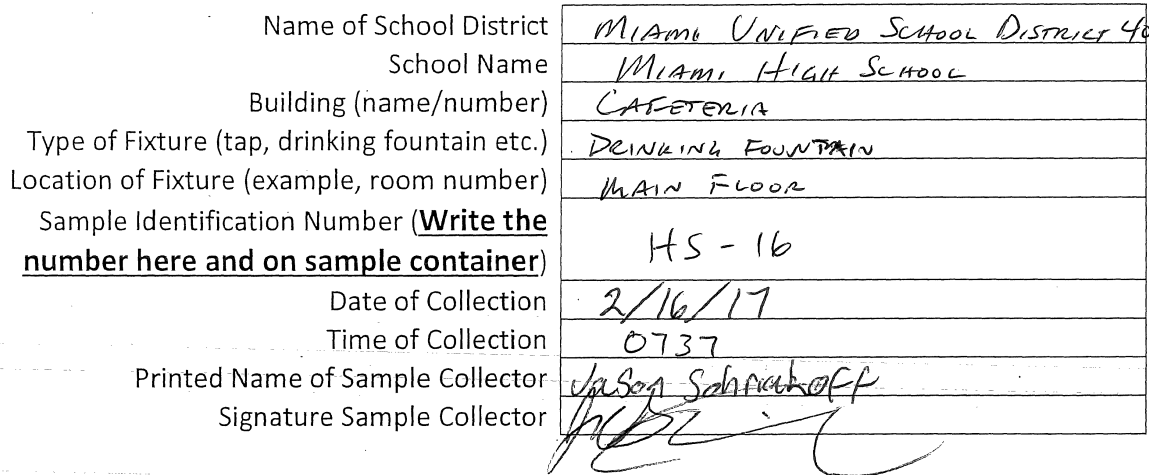 Name of School District MIAMI UNIFIED SCHOOL DISTRICT 40
School Name MIAMI HIGH SCHOOL
Building (name/number) CAFETERIA
Type of Fixture (tap, drinking fountain etc.) DRINKING FOUNTAIN
Location of Fixture (example, room number) MAIN FLOOR
Sample Identification Number (Write the
number here and on sample container) HS-16
Date of Collection 2/16/17
Time of Collection 0737
Printed Name of Sample Collector Jason
Signature Sample Collector